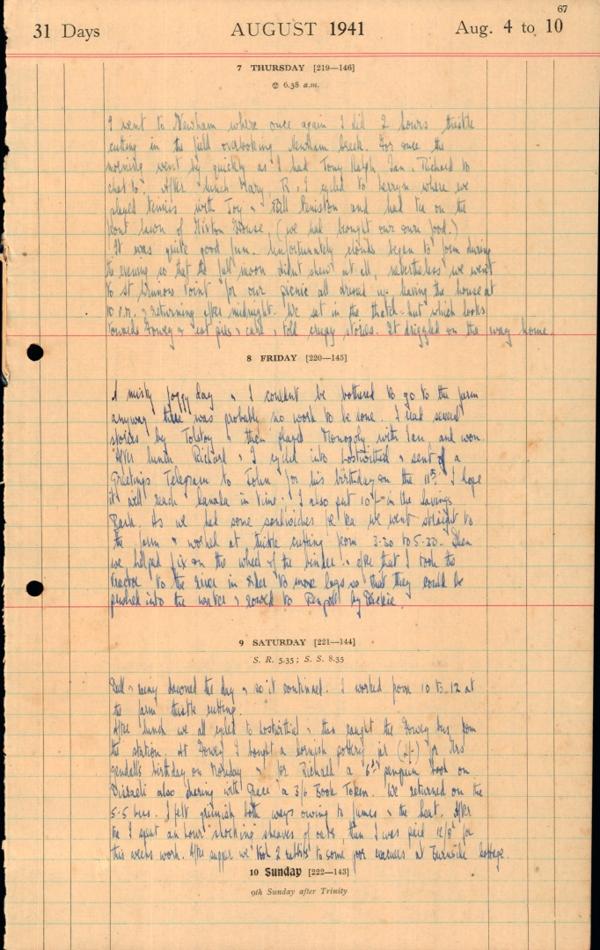 67
31 Days AUGUST 1941 Aug. 4 to 10
7 THURSDAY [219—146]
6.38 a.m.
I went to Newham where once again I did 2 hours thistle
cutting in the field overlooking Newham Creek. For once the
morning went by quickly as I had Tony, Ralph, Ian, Richard to
chat to. After lunch Mary, R, I cycled to where we
played tennis with Joy & Bill and had tea on the
front lawn of House, (we had brought our own food.)
It was quite good fun. Unfortunately clouds began to form during
the evening so that the full moon didn't show at all, nevertheless we went
to St Point for our picnic all dressed up leaving the house at
10 P.M. & returning after midnight. We sat in the thatch-hut which looks
towards Fowey & eat pies & cake, told creepy stories. It drizzled on the way home.
8 FRIDAY [220—145]
A misty foggy day & I couldn't be bothered to go to the farm
anyway there was probably no work to be done. I read several
stories by Tolstoy & then played Monopoly with Ian, and won.
After lunch Richard & I cycled into Lostwithiel & sent of a
Greetings Telegram to John for his birthday on the 11th. I hope
it will reach Canada in time. I also put 10/- in the Savings
Bank. As we had some sandwiches for tea we went straight to
the farm & worked at thistle cutting from 3-30 to 5-30. Then
we helped fix on the wheel of the binder & after that I took the
tractor to the river in order to move logs so that they could be
pushed into the water & rowed to by
9 SATURDAY [221—144]
S. R. 5.35; S. S. 8.35
Dull & rainy dawned the day & so it continued. I worked from 10 to 12 at
the farm thistle cutting.
After lunch we all cycled to Lostwithiel & then caught the Fowey bus from
the station. At Fowey I bought a Cornish pottery jar (2/-) for Mrs
birthday on Monday & for Richard a 6d penguin book on
Disraeli also sharing with Grace a 3/6 Book Token. We returned on the
5-5 bus. I felt greenish both ways owing to fumes & the heat. After
tea I spent an hour shocking sheaves of oats, then I was paid 12/8 for
this weeks work. After supper we took 2 rabbits to some poor evacuees at Burnside Cottage.
10 Sunday [222—143]
9th Sunday after Trinity